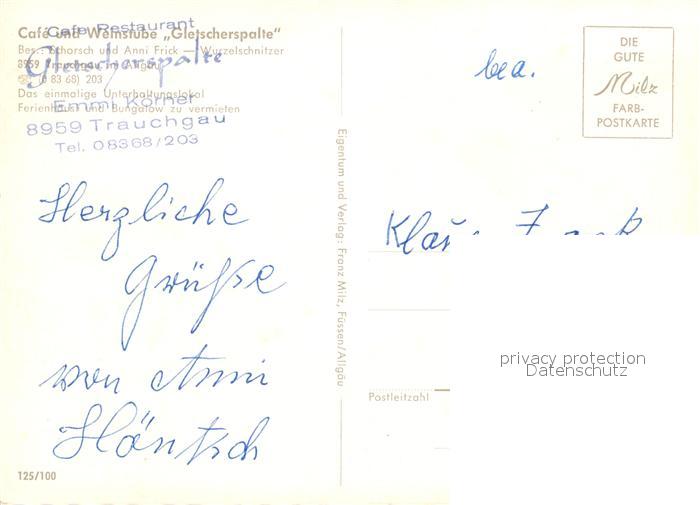 Café und Weinstube „Gletscherspalte“
Bes.: Schorsch und Anni Frick — Wurzelschnitzer
8959 Trauchgau im Allgäu
☎ (0 83 68) 203
Das einmalige Unterhaltungslokal
Ferienhaus und Bungalow zu vermieten
Cafe Restaurant
Gletscherspalte
Emmi Körner
8959 Trauchgau
Tel. 08368/203
Herzliche
Grüße
von Anni
Häntsch
125/100
Eigentum und Verlag: Franz Milz, Füssen/Allgäu
bea.
DIE
GUTE
Milz
FARB-
POSTKARTE
Postleitzahl
privacy protection
Datenschutz